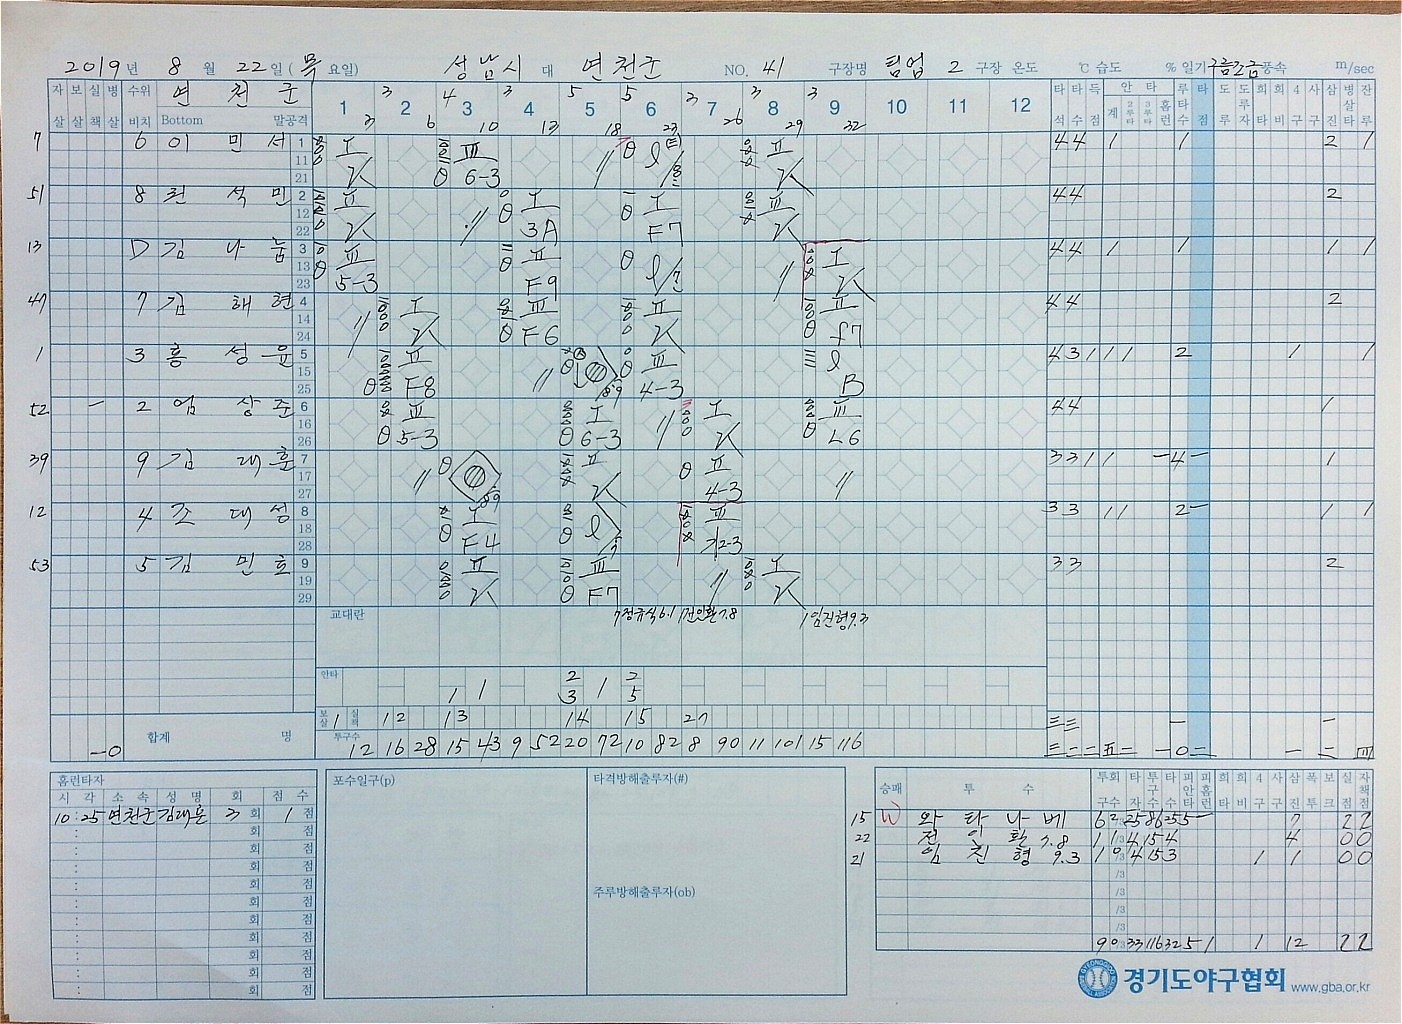 2019년 8월 22일 (목요일) 성남시 대 연천군 NO. 41 구장명 팀업 2 구장 온도 ℃ 습도 % 일기 구름조금 풍속 m/sec
자살 보살 실책 병살 수위 비치 연천군 Bottom 말공격 1 2 3 4 5 6 7 8 9 10 11 12 타석 타수 득점 안타 계 2루타 3루타 홈런 루타수 타점 도루 도루자 희타 희비 4구 사구 삼진 병살타 잔루
3 4 3 5 5 3 3 3
3 6 10 13 18 23 26 29 32
7 6 이민서 1 11 21 I K III 6-3 II K 4 4 1 1 2 1
51 8 권석민 2 12 22 II K I 3A I F7 III K 4 4 2
13 D 김나눔 3 13 23 III 5-3 II F9 I K 4 4 1 1 1 1
47 7 김해현 4 14 24 I K III F6 II K II f7 4 4 2
1 3 홍성윤 5 15 25 II F8 III 4-3 B 4 3 1 1 1 2 1 1
52 2 엄상준 6 16 26 III 5-3 I 6-3 I K III L6 4 4 1
39 9 김대훈 7 17 27 II K II 4-3 3 3 1 1 - 4 - 1
12 4 조대성 8 18 28 I F4 III 3 3 1 1 2 - 1 1
53 5 김민호 9 19 29 II K III F7 I K 3 3 2
교대란 7정규식6.1 1전인환7.8 1임진형9.3
안타 1 1 2 3 1 2 5
보살 실책 1 12 13 14 15 27
합계 명 투구수 12 16 28 15 43 9 52 20 72 10 82 8 90 11 101 15 116
홈런타자 포수일구(p) 타격방해출루자(#)
시 각 소 속 성 명 회 점 수
10:25 연천군 김대훈 3회 1점
회 점
회 점
회 점
회 점
회 점
회 점
회 점
회 점
회 점
회 점
주루방해출루자(ob)
승패 투수 투구회수 타자 투구수 타수 피안타 피홈런 희타 희비 4구 사구 삼진 폭투 보크 실점 자책점
15 W 와타나베 6 2/3 25 86 25 5 - 7 2 2
22 전인환 7.8 1 1/3 4 15 4 4 0 0
21 임진형 9.3 1 0/3 4 15 3 1 1 0 0
/3
/3
/3
/3
9 0/3 33 116 32 5 1 1 12 2 2
경기도야구협회 www.gba.or.kr